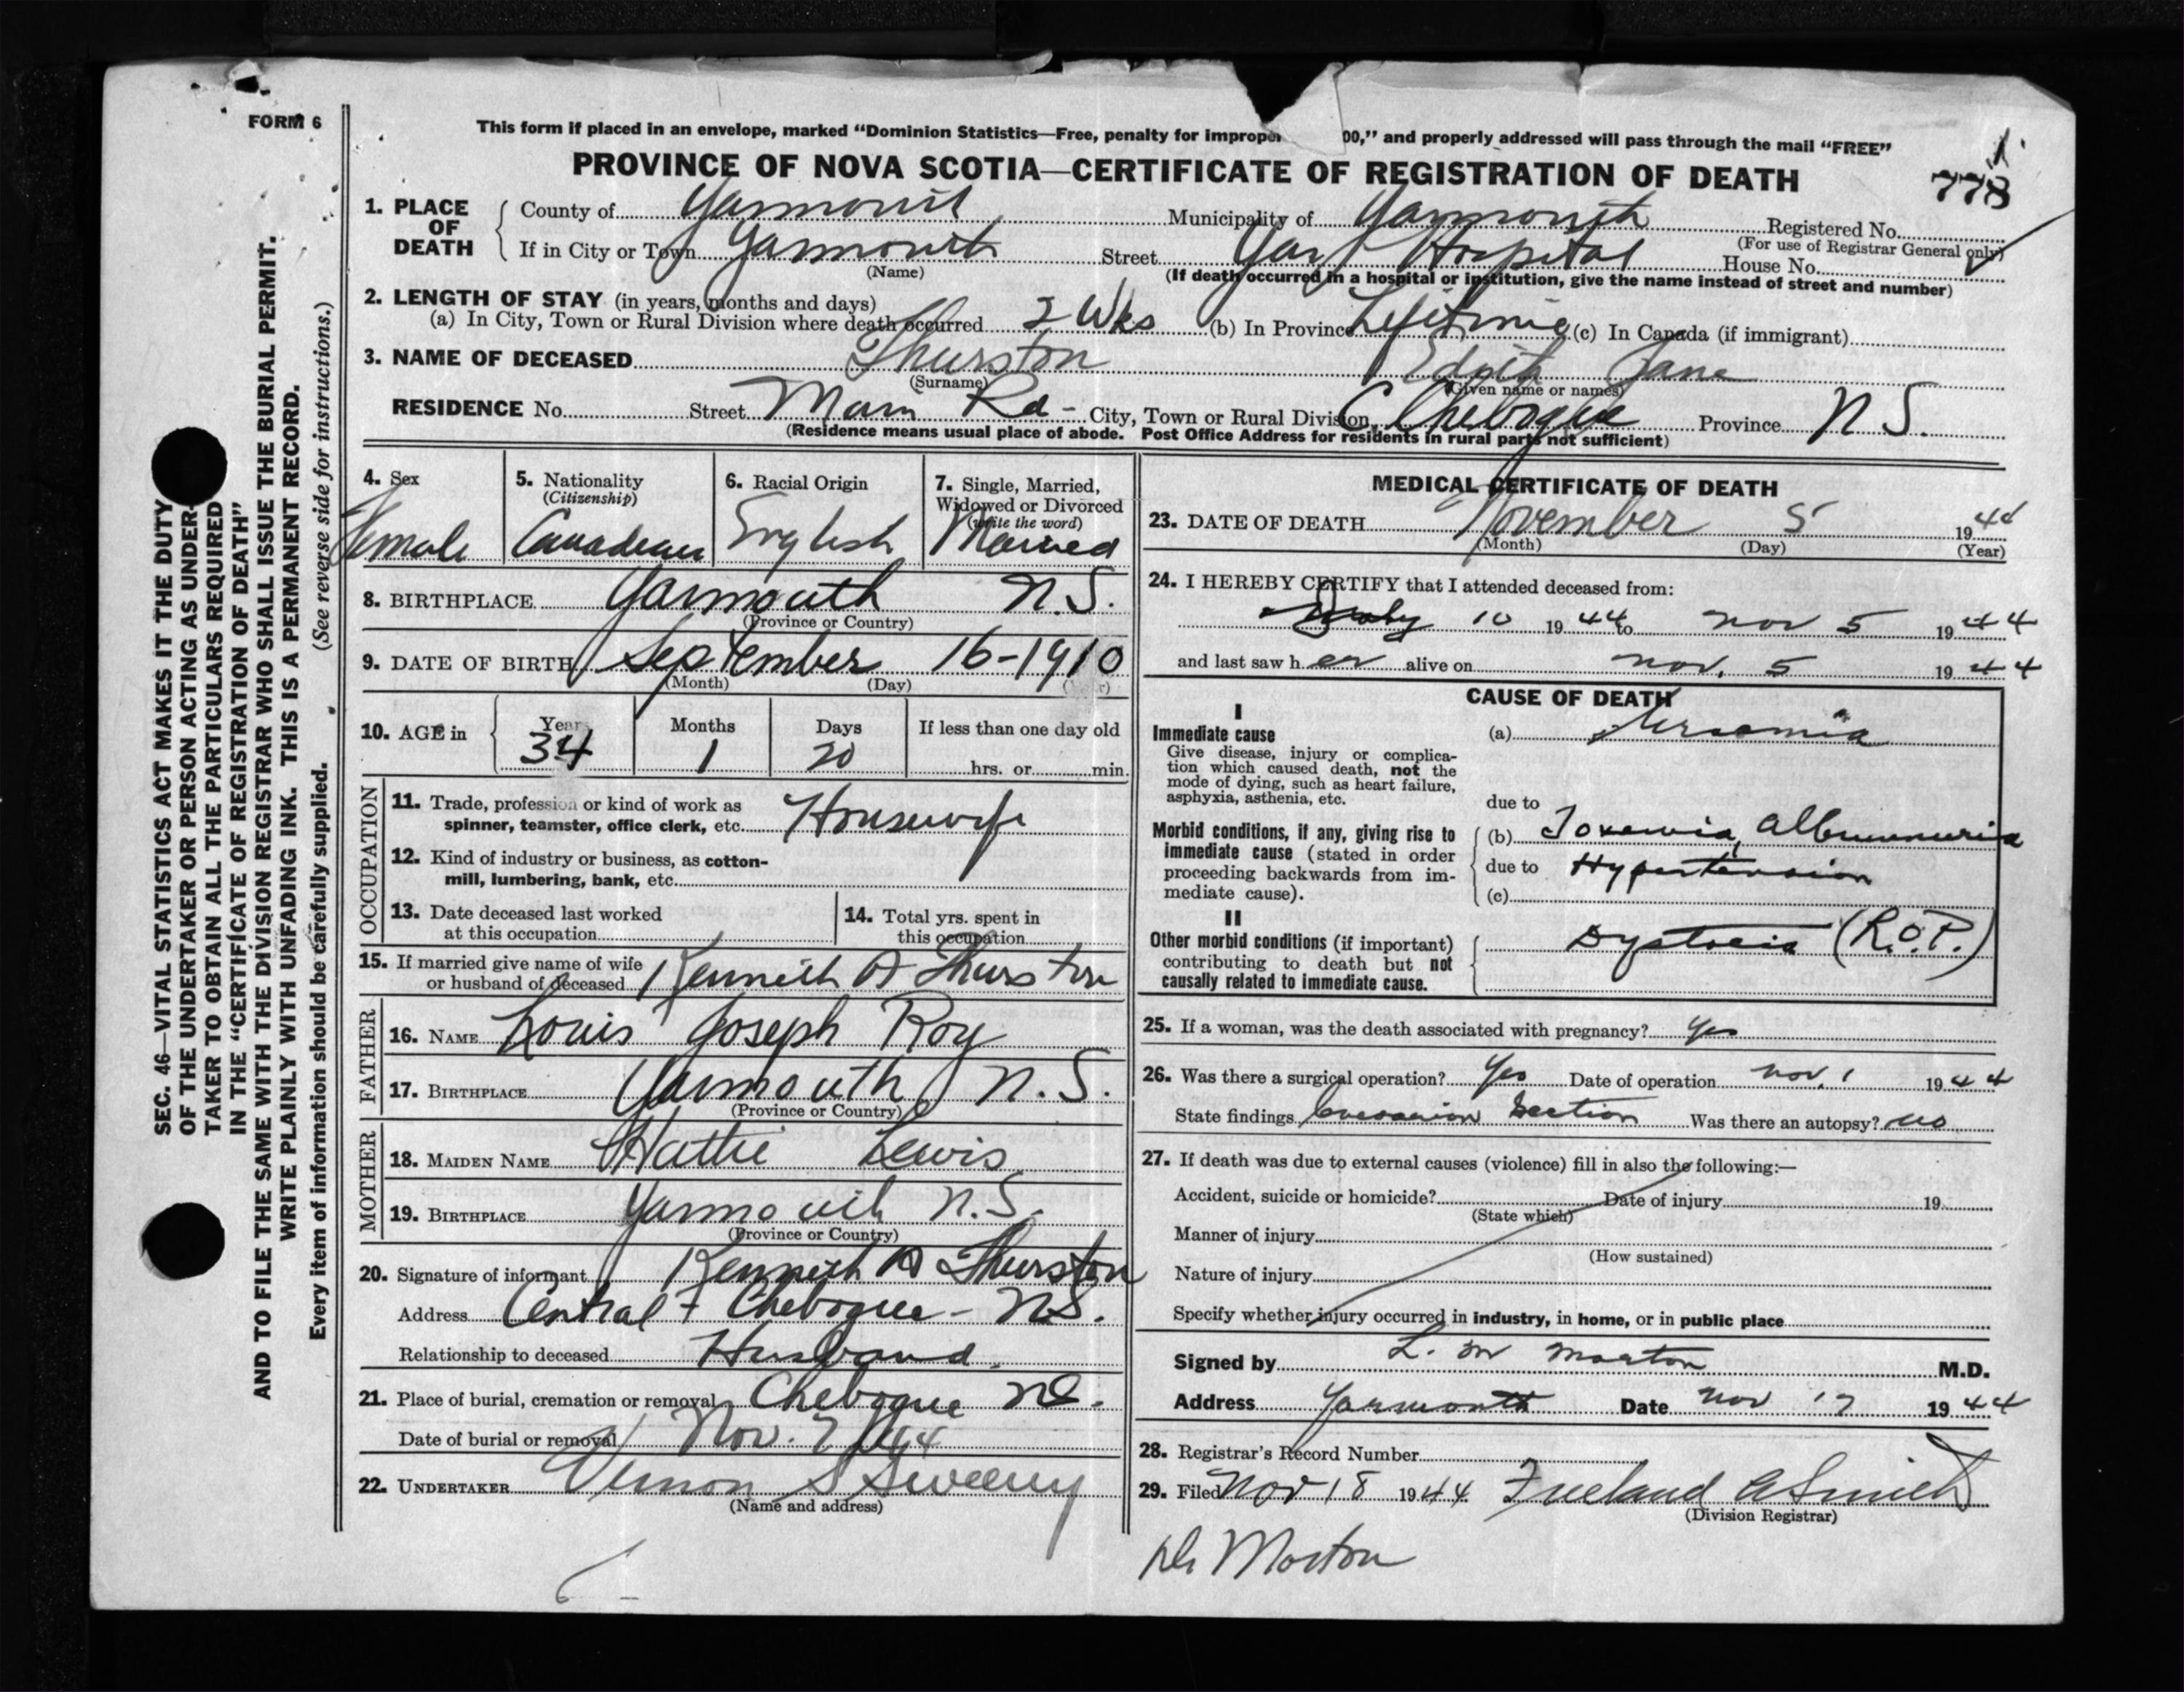 FORM 6
This form if placed in an envelope, marked “Dominion Statistics—Free, penalty for improper 00,” and properly addressed will pass through the mail “FREE”
PROVINCE OF NOVA SCOTIA—CERTIFICATE OF REGISTRATION OF DEATH
778
1. PLACE OF DEATH
County of Yarmouth Municipality of Yarmouth Registered No.
(For use of Registrar General only)
If in City or Town Yarmouth Street Yar Hospital House No.
(Name) (If death occurred in a hospital or institution, give the name instead of street and number)
2. LENGTH OF STAY (in years, months and days)
(a) In City, Town or Rural Division where death occurred 2 Wks (b) In Province Lifetime (c) In Canada (if immigrant)
3. NAME OF DECEASED Thurston Edith Jane
(Surname) (Given name or names)
RESIDENCE No. Street Main Rd - City, Town or Rural Division C Chebogue Province N S.
(Residence means usual place of abode. Post Office Address for residents in rural parts not sufficient)
4. Sex
Female
5. Nationality
(Citizenship)
Canadian
6. Racial Origin
English
7. Single, Married,
Widowed or Divorced
(write the word)
Married
8. BIRTHPLACE Yarmouth N.S.
(Province or Country)
9. DATE OF BIRTH September 16-1910
(Month) (Day) (Year)
10. AGE in
Years Months Days If less than one day old
34 1 20 hrs. or min.
OCCUPATION
11. Trade, profession or kind of work as
spinner, teamster, office clerk, etc. Housewife
12. Kind of industry or business, as cotton-
mill, lumbering, bank, etc.
13. Date deceased last worked
at this occupation
14. Total yrs. spent in
this occupation
15. If married give name of wife
or husband of deceased Kenneth A Thurston
FATHER
16. NAME Louis Joseph Roy
17. BIRTHPLACE Yarmouth N.S.
(Province or Country)
MOTHER
18. MAIDEN NAME Hattie Lewis
19. BIRTHPLACE Yarmouth N.S.
(Province or Country)
20. Signature of informant Kenneth A Thurston
Address Central Chebogue - NS.
Relationship to deceased Husband.
21. Place of burial, cremation or removal Chebogue NS.
Date of burial or removal Nov. 7 1944
22. UNDERTAKER Vernon S Sweeny
(Name and address)
MEDICAL CERTIFICATE OF DEATH
23. DATE OF DEATH November 5 1944
(Month) (Day) (Year)
24. I HEREBY CERTIFY that I attended deceased from:
10 1944 to Nov 5 1944
and last saw her alive on Nov. 5 1944
CAUSE OF DEATH
I
Immediate cause
Give disease, injury or complica-
tion which caused death, not the
mode of dying, such as heart failure,
asphyxia, asthenia, etc.
(a) Uraemia
due to
Morbid conditions, if any, giving rise to
immediate cause (stated in order
proceeding backwards from im-
mediate cause).
(b) Toxemia, Albuminuria
due to Hypertension
(c)
II
Other morbid conditions (if important)
contributing to death but not
causally related to immediate cause.
Dystocia (R.O.P.)
25. If a woman, was the death associated with pregnancy? Yes
26. Was there a surgical operation? Yes Date of operation Nov. 1 1944
State findings Caesarian Section Was there an autopsy? No
27. If death was due to external causes (violence) fill in also the following:—
Accident, suicide or homicide? Date of injury 19
(State which)
Manner of injury
(How sustained)
Nature of injury
Specify whether injury occurred in industry, in home, or in public place
Signed by L. M Morton M.D.
Address Yarmouth Date Nov 17 1944
28. Registrar's Record Number
29. Filed Nov 18 1944 Freeland A Smith
(Division Registrar)
Dr Morton
SEC. 46—VITAL STATISTICS ACT MAKES IT THE DUTY
OF THE UNDERTAKER OR PERSON ACTING AS UNDER-
TAKER TO OBTAIN ALL THE PARTICULARS REQUIRED
IN THE “CERTIFICATE OF REGISTRATION OF DEATH”
AND TO FILE THE SAME WITH THE DIVISION REGISTRAR WHO SHALL ISSUE THE BURIAL PERMIT.
WRITE PLAINLY WITH UNFADING INK. THIS IS A PERMANENT RECORD.
Every item of information should be carefully supplied. (See reverse side for instructions.)